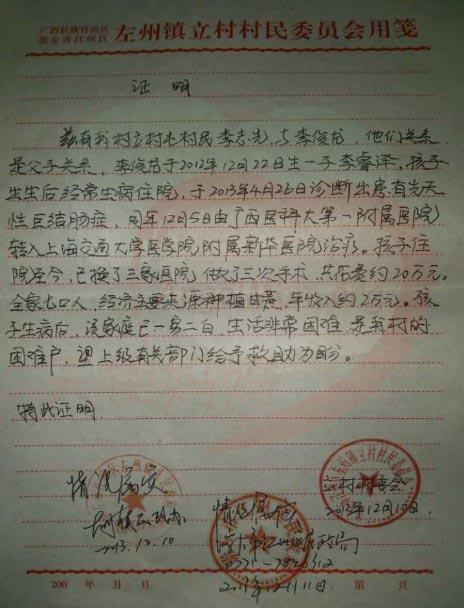 广西壮族自治区
崇左市江州区
左州镇立村村民委员会用笺
证明
兹有我村立村屯村民李志光与李俊龙，他们关系
是父子关系，李俊龙于2012年12月22日生一子李睿泽，孩子
出生后经常生病住院，于2013年4月26日诊断出患有先天
性巨结肠症，同年12月5日由广西医科大第一附属医院
转入上海交通大学医学院附属新华医院治疗。孩子住
院至今，已换了三家医院，做了三次手术，共花费约20万元。
全家七口人，经济主要来源种植甘蔗，年收入约2万元。孩
子生病后，该家庭已一穷二白，生活非常困难，是我村的
困难户，望上级有关部门给予救助为盼。
特此证明
情况属实
2013.12.10
情况属实
立村村委会
2013年12月10日
12月11日
200 年 月 日
第 页